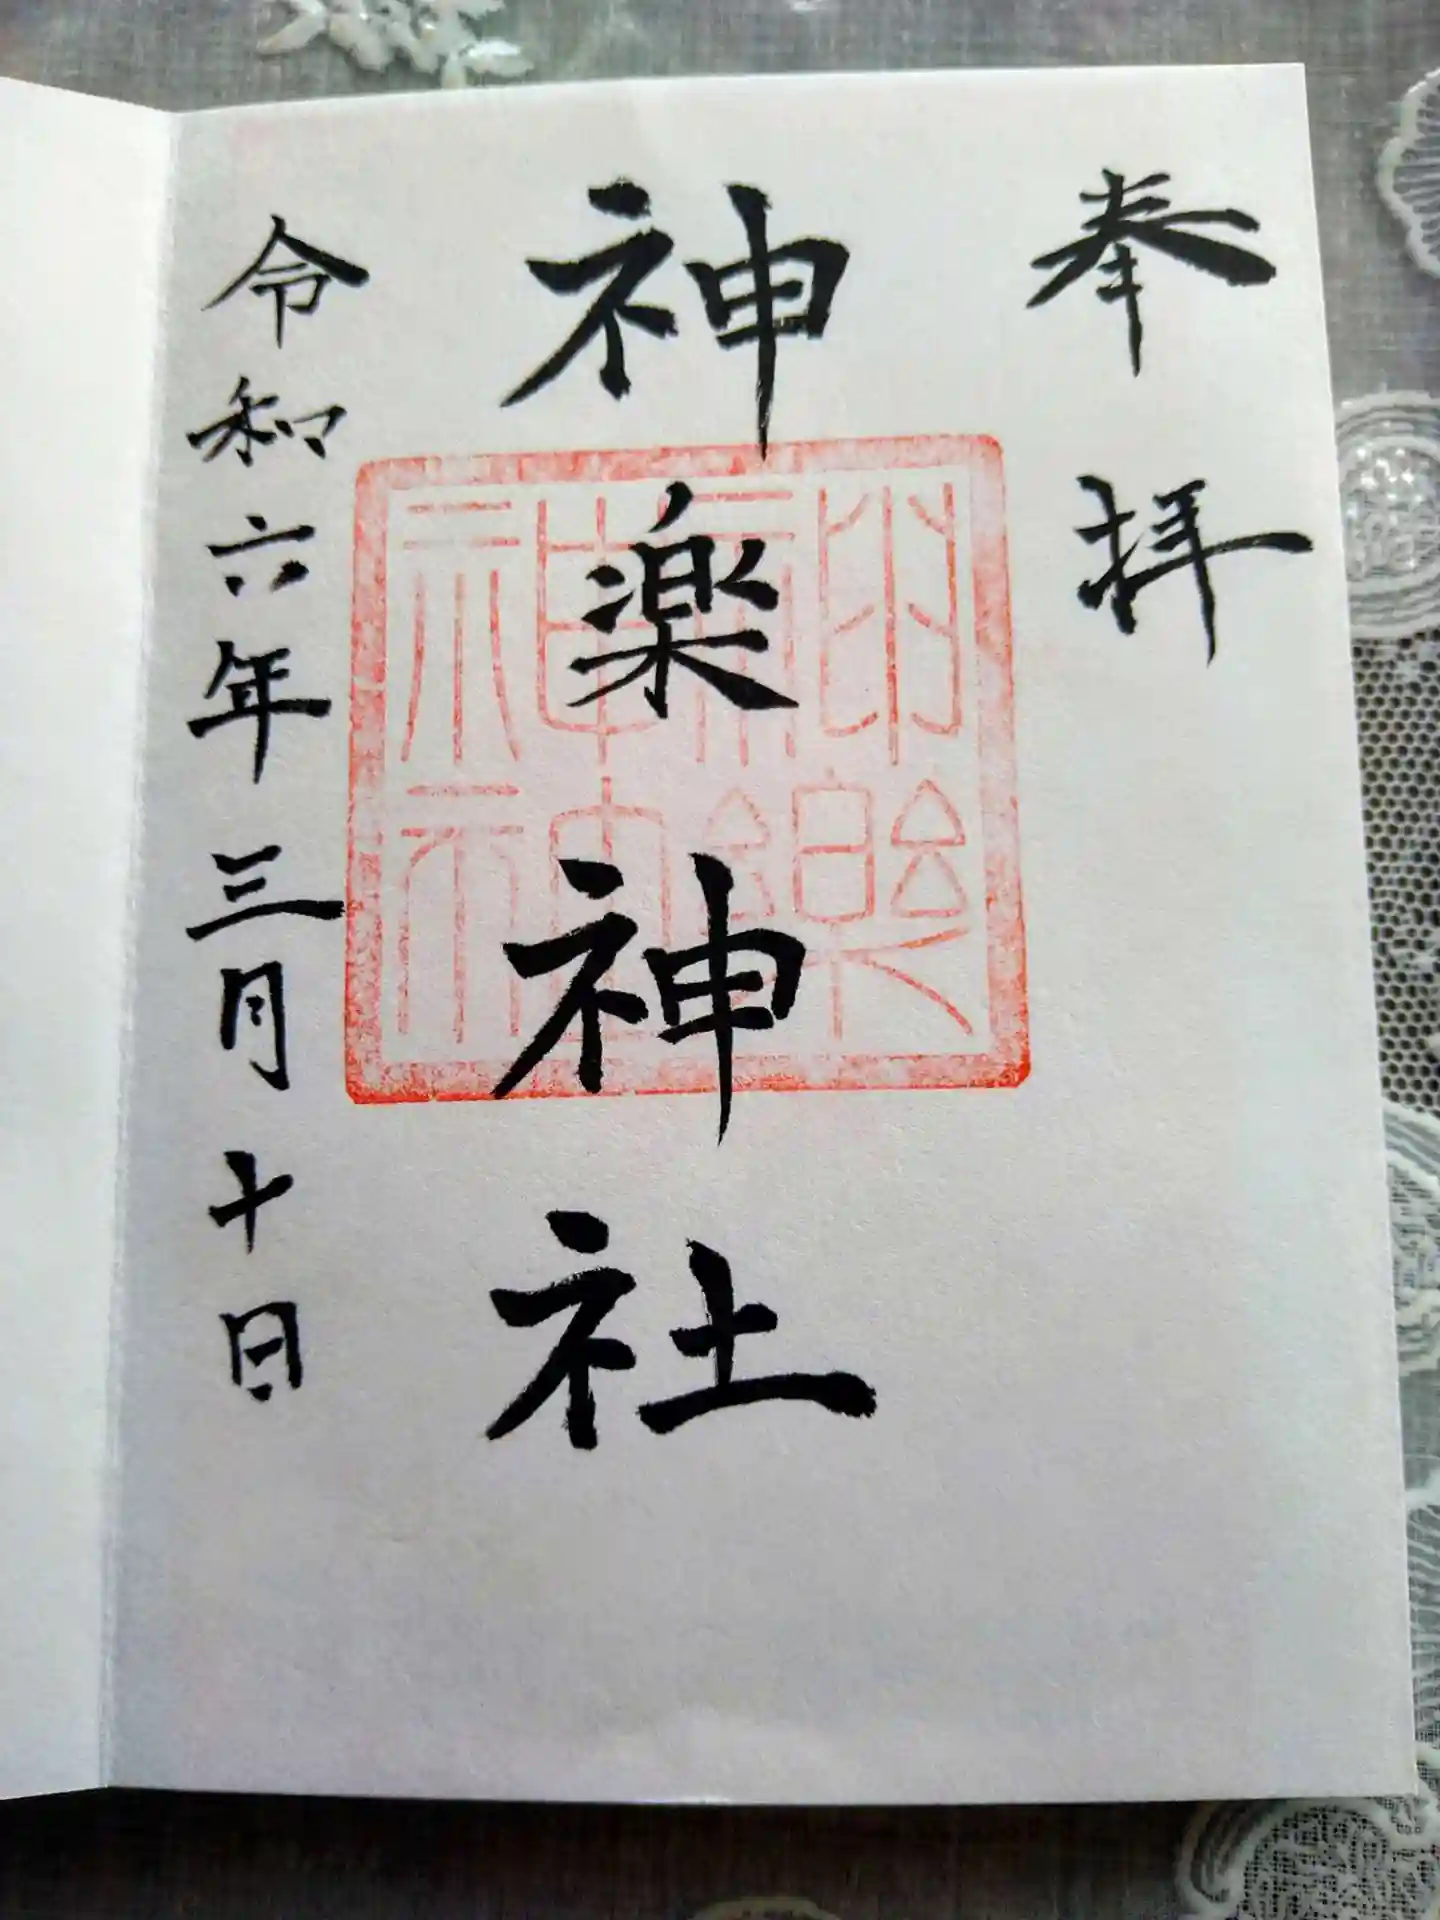 奉拝
神楽神社
令和六年三月十日
神樂神社